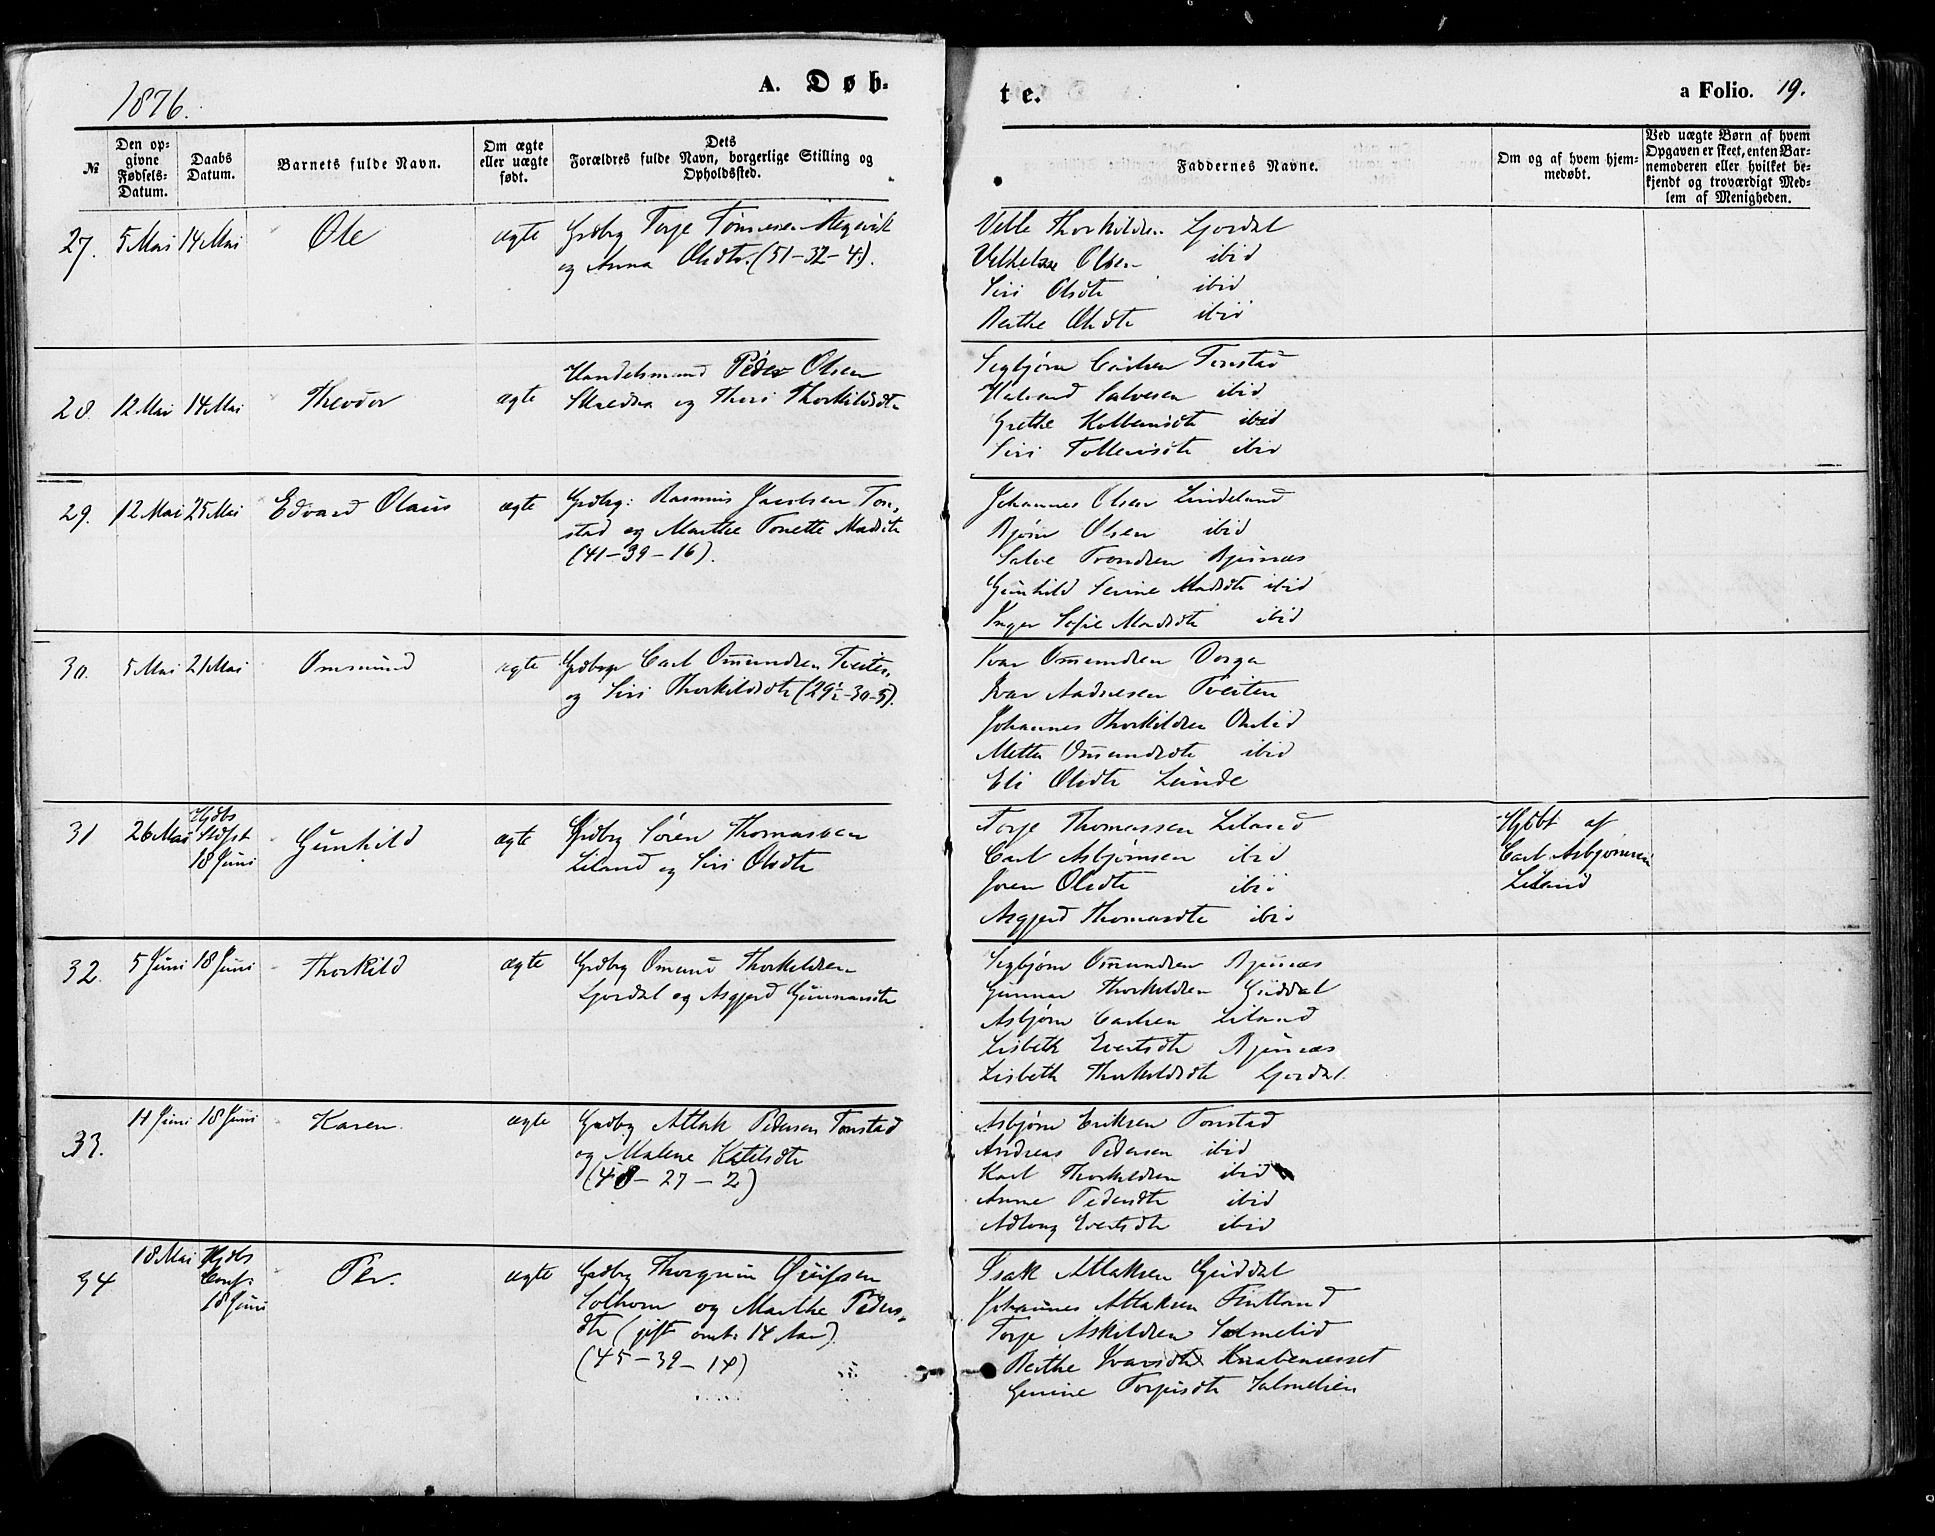 1876.
A. Døb-
te.
a Folio. 19.
№
Den op-
givne
Fødsels-
Datum.
Daabs
Datum.
Barnets fulde Navn.
Om ægte
eller uægte
født.
Dets
Forældres fulde Navn, borgerlige Stilling og
Opholdssted.
Faddernes Navne.
Om og af hvem hjem-
medøbt.
Ved uægte Børn af hvem
Opgaven er skeet, enten Bar-
nemoderen eller hvilket be-
kjendt og troværdigt Med-
lem af Menigheden.
27. 5 Mai 14 Mai Ole ægte Grdbrg Torje Tønnesen
og Anna Olsdtr. (51-32-4).
Thorkildsen Gjordal
Olsen ibid
Siri Olsdtr ibid
Berthe Olsdtr ibid
28. 12 Mai 14 Mai Theodor ægte Handelsmand Peder Olsen
og Theri Thorkildsdtr
Sigbjørn Carlsen Tonstad
Halvard Salvesen ibid
Grethe Kolbensdtr ibid
Siri Tollevsdtr ibid
29. 12 Mai 25 Mai Edvard Olaus ægte Grdbrg: Rasmus Jacobsen Ton-
stad og Marthe Tonette Madsdtr
(41-39-16).
Johannes Olsen Lindeland
Bjørn Olsen ibid
Salve Trondsen Bjunæs
Gunhild Serine Madsdtr ibid
Inger Sofie Madsdtr ibid
30. 5 Mai 21 Mai Omsund ægte Grdbrgr Carl Omundsen Tveiten
og Siri Thorkildsdtr (29½-30-5).
Ivar Omundsen Dorge
Ivar Andresen Tveiten
Johannes Thorkildsen Omlid
Mette Omundsdtr ibid
Eli Olsdtr Lunde
31 26 Mai Hjdbs
Stdfst
18 Juni Gunhild ægte Grdbrg Søren Thomassen
Liland og Siri Olsdtr
Torje Thomassen Liland
Carl Asbjørnsen ibid
Joren Olsdtr ibid
Asgjerd Thomasdtr ibid
Hjdbt af
Carl Asbjørnsen
Liland
32. 5 Juni 18 Juni Thorkild ægte Grdbrg Omund Thorkildsen
Gjordal og Asgjerd Gunnarsdtr
Sigbjørn Omundsen Bjunæs
Gunnar Thorkildsen Guddal
Asbjørn Carlsen Liland
Lisbeth Evertsdtr Bjunæs
Lisbeth Thorkildsdtr Gjordal.
33. 11 Juni 18 Juni Karen. ægte Grdbrg Atlak Pedersen Tonstad
og Malene Ketilsdtr
(48-27-2)
Asbjørn Eriksen Tonstad
Andreas Pedersen ibid
Karl Thorkildsen ibid
Anne Pedersdtr ibid
Adlaug Evertsdtr ibid
34 18 Mai Hjdbs
Conf.
18 Juni Per. ægte Grdbrg Thorgrim
Solhom og Marthe Peders-
dtr (gift omtr. 14 Aar)
(45-39-14)
Isak Atlaksen Guddal
Johannes Atlaksen Fintland
Torje Askildsen Salmelid
Berthe Ivarsdtr Knabenæsset
Gurine Torjusdtr Salmelien